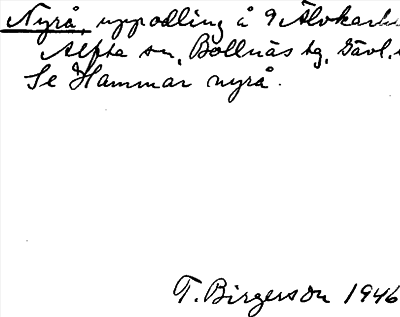 Nyrå, uppodling å 9 Älvkarhu
Alfta sn, Bollnäs tg, Gävl.
Se Hammar nyrå.
T. Birgerson 1946